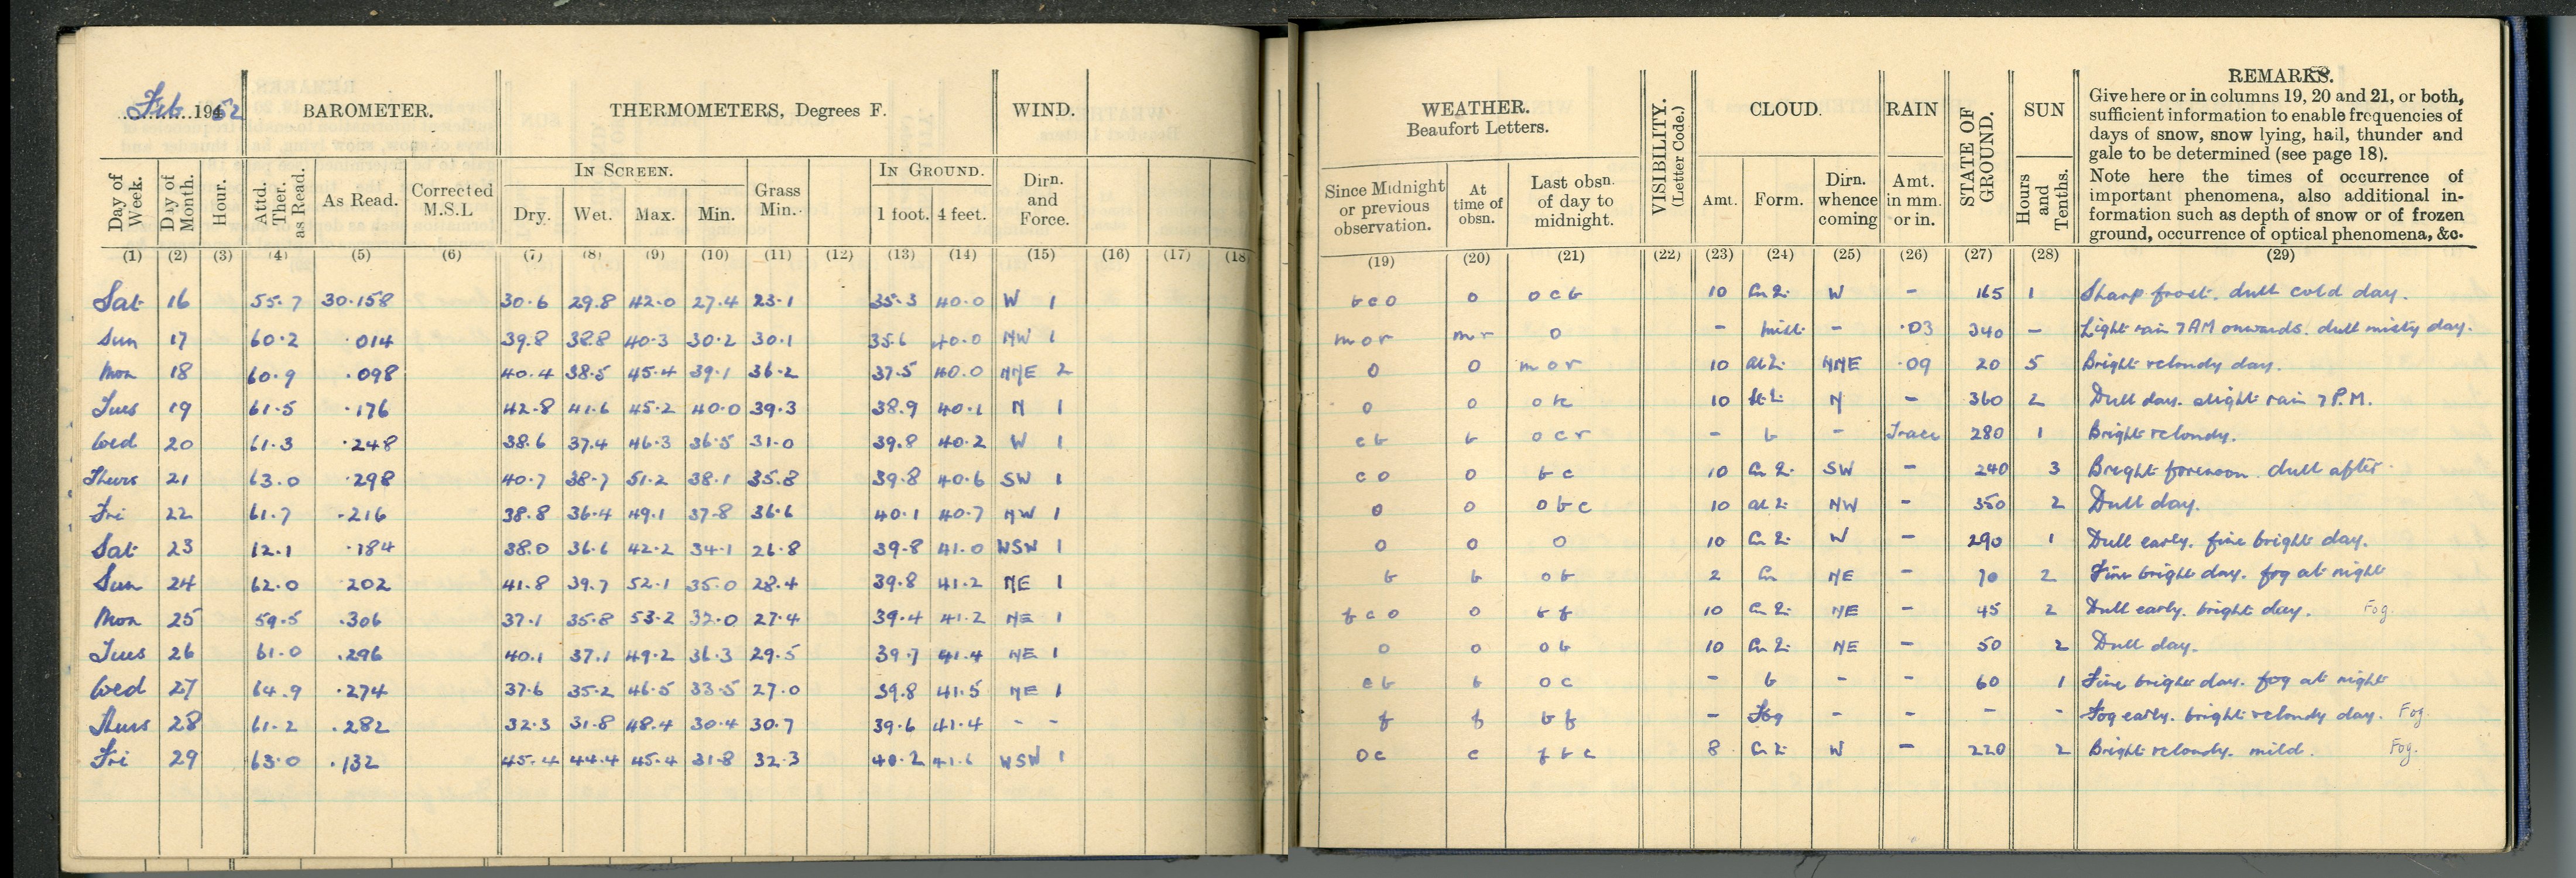 Feb. 1952 BAROMETER. THERMOMETERS, Degrees F. WIND.
Day of Week. Day of Month. Hour. Attd. Ther. as Read. As Read. Corrected M.S.L IN SCREEN. Dry. Wet. Max. Min. Grass Min. IN GROUND. 1 foot. 4 feet. Dirn. and Force.
(1) (2) (3) (4) (5) (6) (7) (8) (9) (10) (11) (12) (13) (14) (15) (16) (17) (18
Sat 16 55.7 30.158 30.6 29.8 42.0 27.4 23.1 35.3 40.0 W 1
Sun 17 60.2 .014 39.8 38.8 40.3 30.2 30.1 35.6 40.0 NW 1
Mon 18 60.9 .098 40.4 38.5 45.4 39.1 36.2 37.5 40.0 NNE 2
Tues 19 61.5 .176 42.8 41.6 45.2 40.0 39.3 38.9 40.1 N 1
Wed 20 61.3 .248 38.6 37.4 46.3 36.5 31.0 39.8 40.2 W 1
Thurs 21 63.0 .298 40.7 38.7 51.2 38.1 35.8 39.8 40.6 SW 1
Fri 22 61.7 .216 38.8 36.4 49.1 37.8 36.6 40.1 40.7 NW 1
Sat 23 12.1 .184 38.0 36.6 42.2 34.1 26.8 39.8 41.0 WSW 1
Sun 24 62.0 .202 41.8 39.7 52.1 35.0 28.4 39.8 41.2 NE 1
Mon 25 59.5 .306 37.1 35.8 53.2 32.0 27.4 39.4 41.2 NE 1
Tues 26 61.0 .296 40.1 37.1 49.2 36.3 29.5 39.7 41.4 NE 1
Wed 27 64.9 .274 37.6 35.2 46.5 33.5 27.0 39.8 41.5 NE 1
Thurs 28 61.2 .282 32.3 31.8 48.4 30.4 30.7 39.6 41.4 - -
Fri 29 63.0 .132 45.4 44.4 45.4 31.8 32.3 40.2 41.6 WSW 1
WEATHER. Beaufort Letters. VISIBILITY. (Letter Code.) CLOUD. RAIN STATE OF GROUND. SUN REMARKS.
Since Midnight or previous observation. At time of obsn. Last obsn. of day to midnight. Amt. Form. Dirn. whence coming Amt. in mm. or in. Hours and Tenths.
Give here or in columns 19, 20 and 21, or both,
sufficient information to enable frequencies of
days of snow, snow lying, hail, thunder and
gale to be determined (see page 18).
Note here the times of occurrence of
important phenomena, also additional in-
formation such as depth of snow or of frozen
ground, occurrence of optical phenomena, &c.
(19) (20) (21) (22) (23) (24) (25) (26) (27) (28) (29)
bco o ocb 10 W - 165 1 Sharp frost. dull cold day.
mor mr o - mist - .03 340 - Light rain 7AM onwards. dull misty day.
o o mor 10 NNE .09 20 5 Bright & cloudy day.
o o 10 N - 360 2 Dull day. slight rain 7 P.M.
cb b ocr - b - Trace 280 1 Bright & cloudy.
co o bc 10 SW - 240 3 Bright forenoon. dull after.
o o obc 10 NW - 350 2 Dull day.
o o o 10 W - 290 1 Dull early. fine bright day.
b b ob 2 Cu NE - 70 2 Fine bright day. fog at night
fco o bf 10 NE - 45 2 Dull early. bright day. Fog.
o o ob 10 NE - 50 2 Dull day.
cb b oc - b - - 60 1 Fine bright day. fog at night
f f bf - Fog - - - - Fog early. bright & cloudy day. Fog.
oc c fbc 8 W - 220 2 Bright & cloudy. mild. Fog.